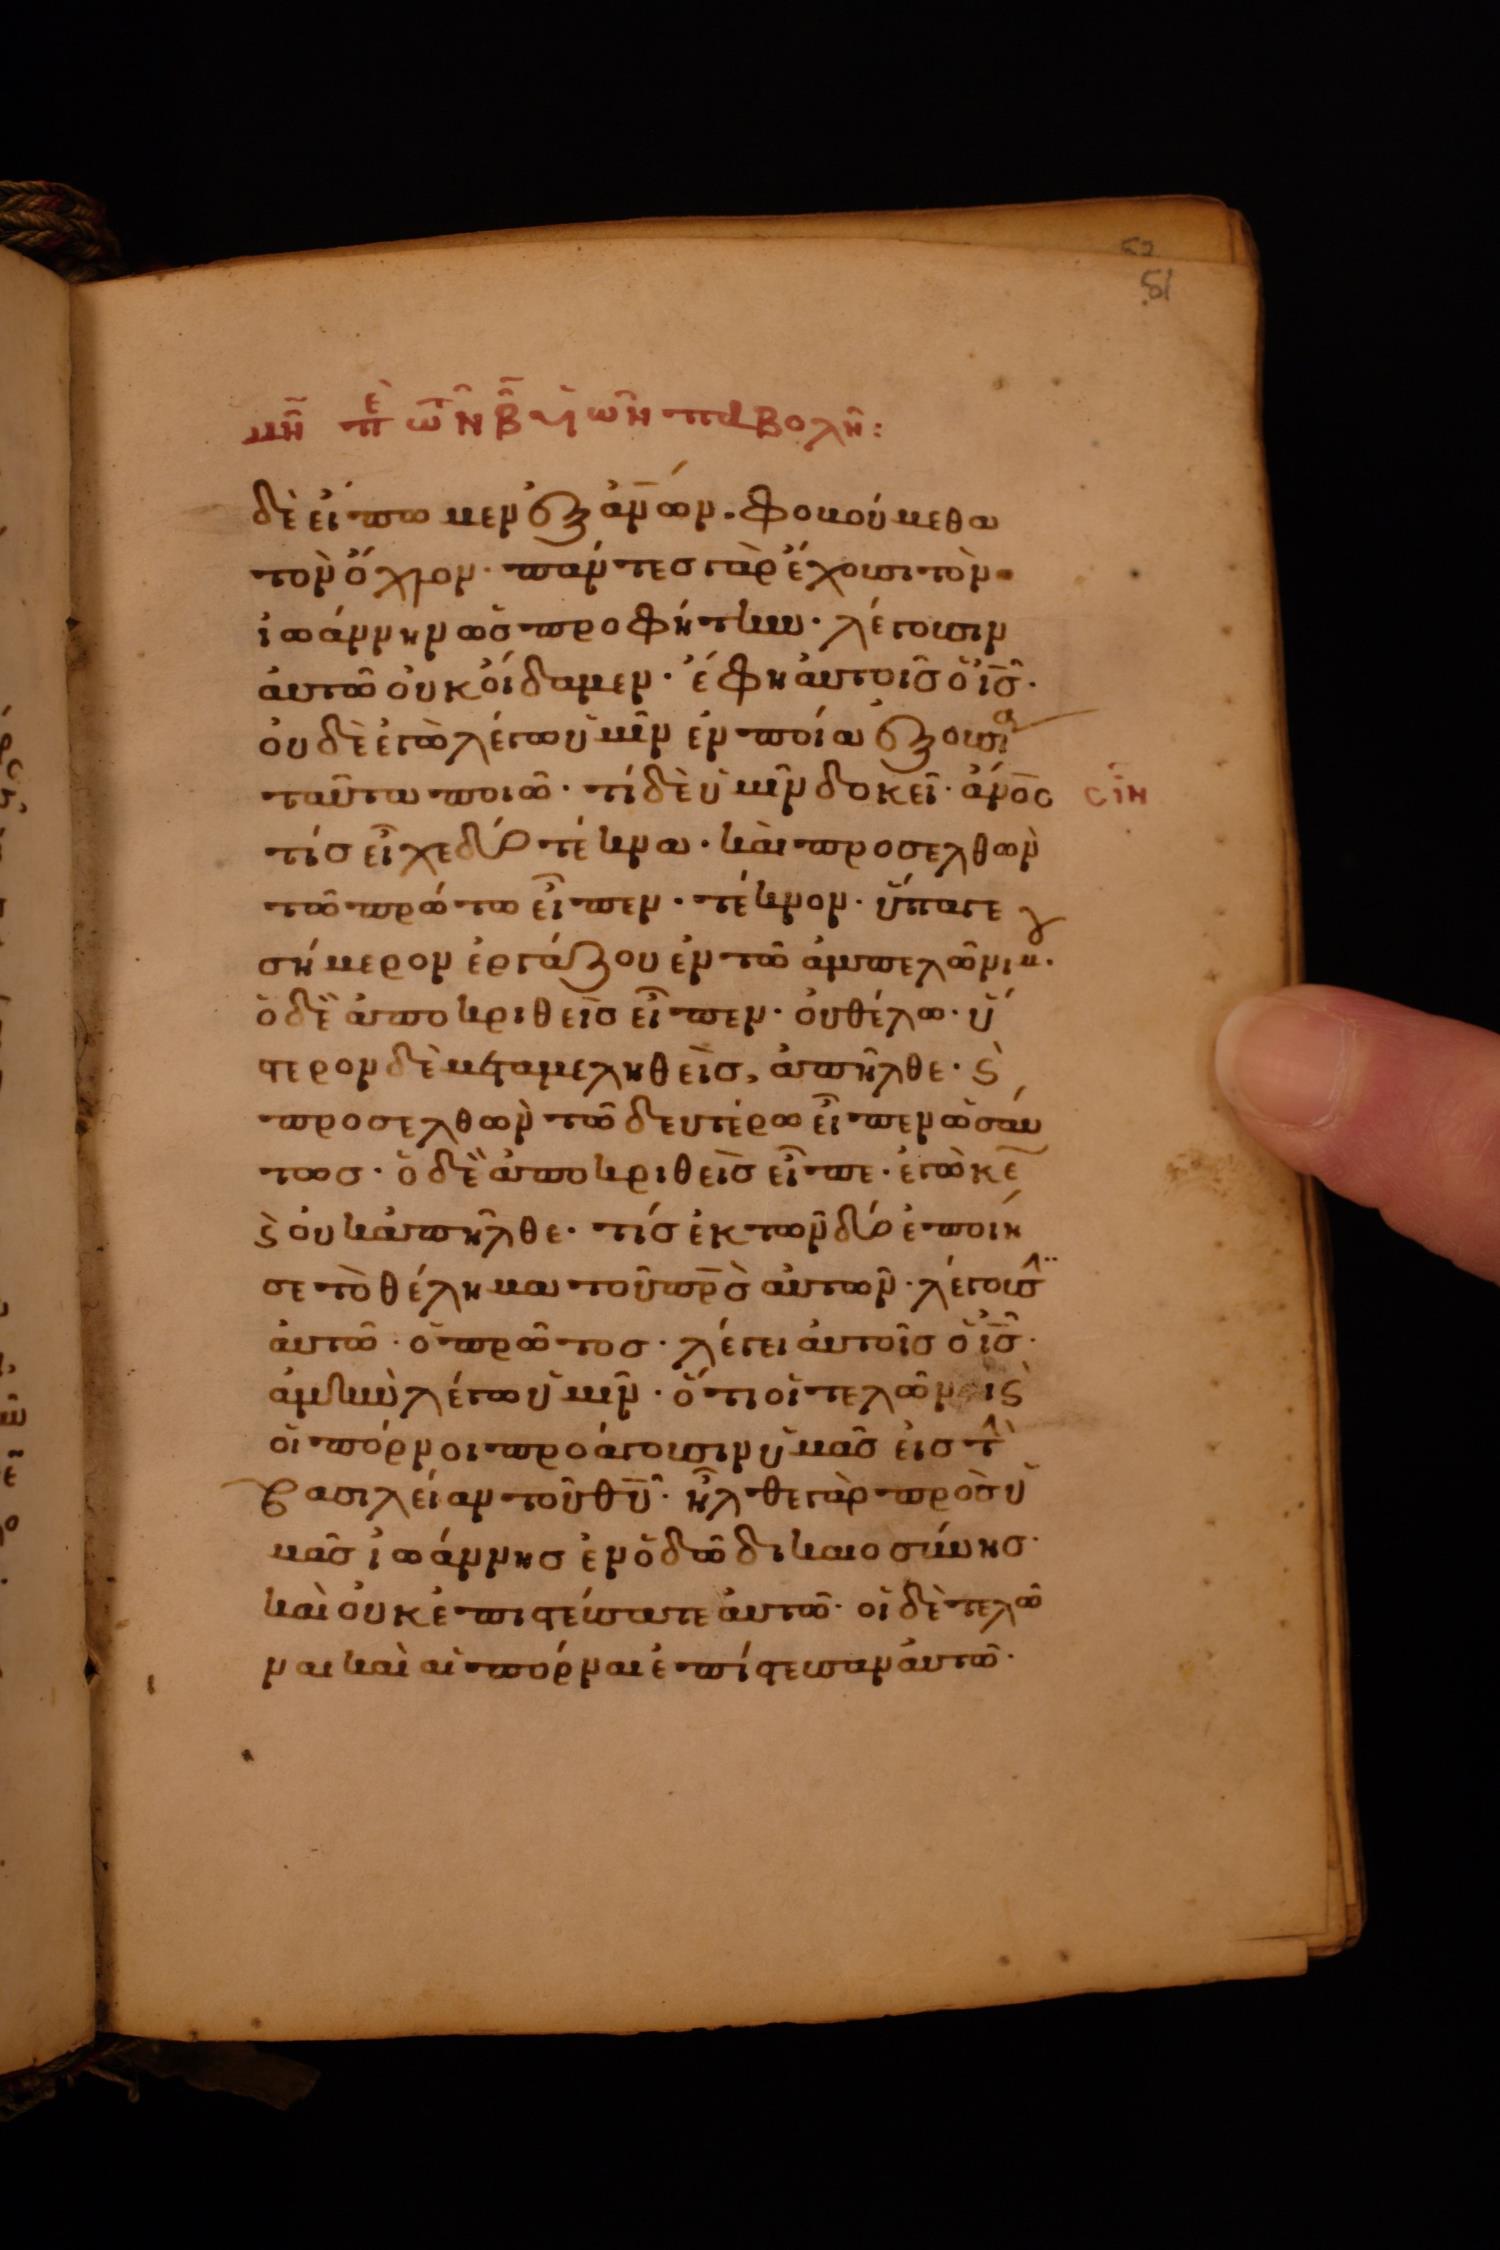 52
51
μη πε των β υιων παραβολη:
δὲ εἴπωμεν ἐξ ἀνων. φοβούμεθα
τὸν ὄχλον· πάντες γὰρ ἔχουσι τὸν
ἰωάννην ὡς προφήτην· λέγουσιν
αὐτῶ οὐκ οἴδαμεν· ἔφη αὐτοῖς ὁ ις·
οὐδὲ ἐγὼ λέγω ὑμῖν ἐν ποία ἐξουσία
ταῦτα ποιῶ· τί δὲ ὑμῖν δοκεῖ· ἄνος
τίς εἶχε δύο τέκνα· καὶ προσελθὼν
τῶ πρώτω εἶπεν· τέκνον· ὕπαγε
σήμερον ἐργάζου ἐν τῶ ἀμπελῶνι μου·
ὁ δὲ ἀποκριθεὶς εἶπεν· οὐ θέλω· ὕ
στερον δὲ μεταμεληθεὶς, ἀπῆλθε· ϗ
προσελθὼν τῶ δευτέρω εἶπεν ὡσαύ
τως· ὁ δὲ ἀποκριθεὶς εἶπε· ἐγὼ κε
ϗ οὐκ ἀπῆλθε· τίς ἐκ τῶν δύο ἐποίη
σε τὸ θέλημα τοῦ πρς αὐτῶν· λέγουσιν
αὐτῶ· ὁ πρῶτος· λέγει αὐτοῖς ὁ ις·
ἀμὴν λέγω ὑμῖν· ὅτι οἱ τελῶναι ϗ
οἱ πόρνοι προάγουσιν ὑμᾶς εἰς τὴν
βασιλείαν τοῦ θυ· ἦλθε γὰρ πρὸς ὑ
μᾶς ἰωάννης ἐν ὁδῶ δικαιοσύνης·
καὶ οὐκ ἐπιστεύσατε αὐτῶ· οἱ δὲ τελῶ
ναι καὶ αἱ πόρναι ἐπίστευσαν αὐτῶ·